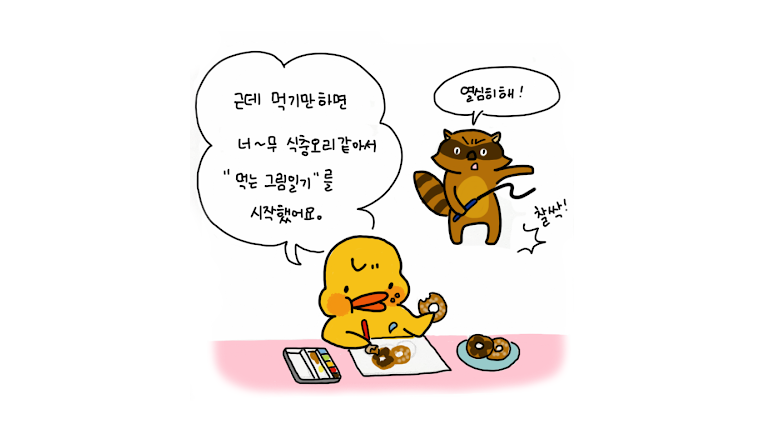 근데 먹기만하면
너~무 식충오리같아서
"먹는 그림일기"를
시작했어요。
열심히해!
찰싹!